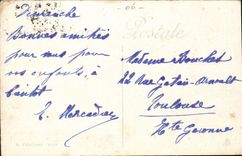 Dimanche
Bonnes amitiés
pour vous pour
vos enfants, à
bientôt
E. Mercadier
06
Postale
Madame Bouchet
22 Rue
Toulouse
Hte Garonne